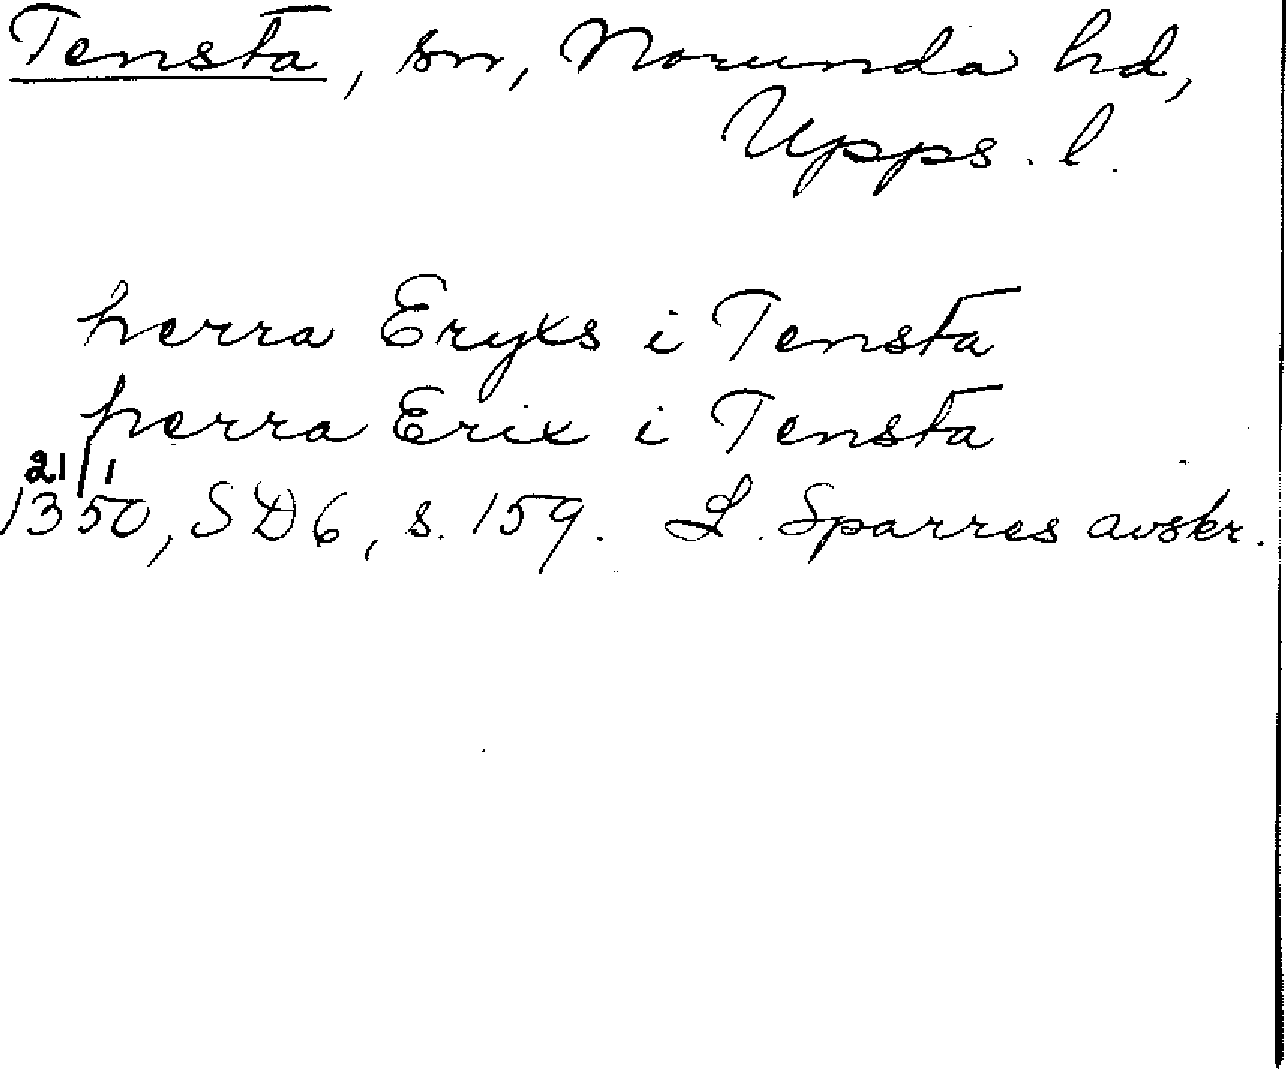 Tensta, sn, Norunda hd,
Upps. l.
herra Eryxs i Tensta
herra Erix i Tensta
21/1
1350, SD 6, s. 159. L. Sparres avskr.